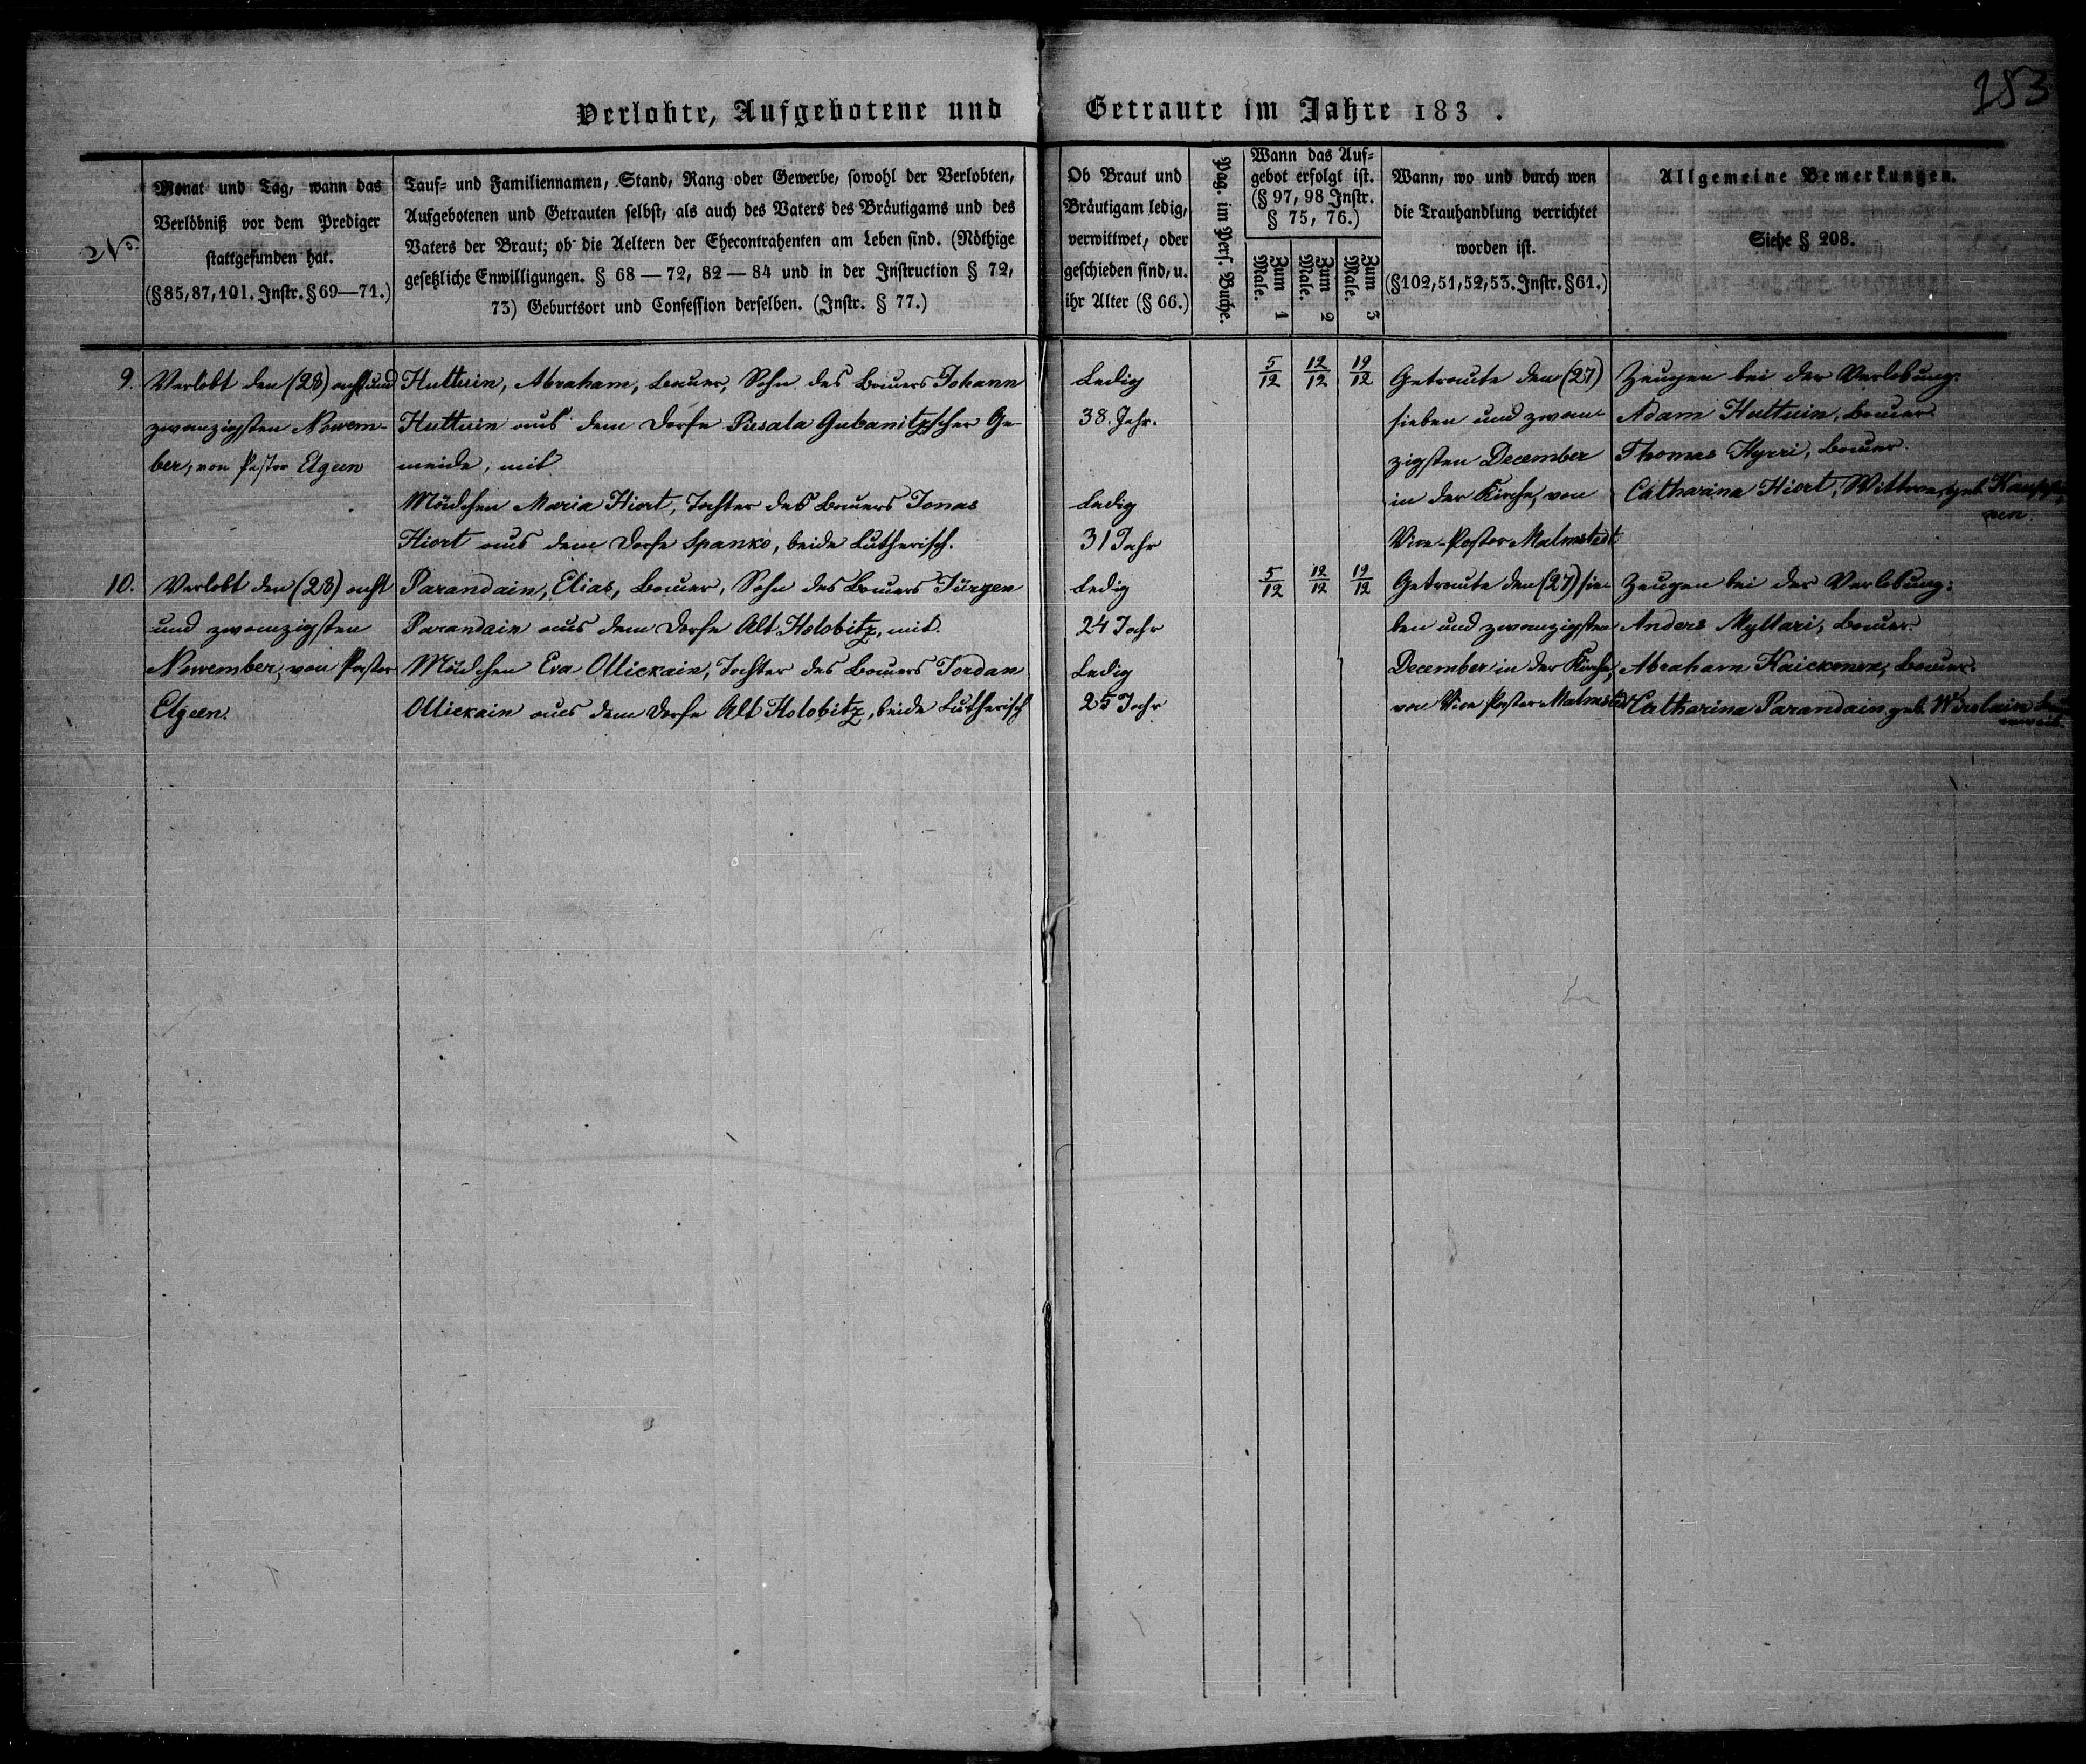 183
Verlobte, Aufgebotene und Getraute im Jahre 183 .
No.
Monat und Tag, wann das
Verlöbniß vor dem Prediger
stattgefunden hat.
(§ 85, 87, 101. Instr. § 69—71.)
Tauf- und Familiennamen, Stand, Rang oder Gewerbe, sowohl der Verlobten,
Aufgebotenen und Getrauten selbst, als auch des Vaters des Bräutigams und des
Vaters der Braut; ob die Aeltern der Ehecontrahenten am Leben sind. (Nöthige
gesetzliche Enwilligungen. § 68 — 72, 82 — 84 und in der Instruction § 72,
73) Geburtsort und Confession derselben. (Instr. § 77.)
Ob Braut und
Bräutigam ledig,
verwittwet, oder
geschieden sind, u.
ihr Alter (§ 66.)
Pag. im Pers. Buche.
Wann das Auf-
gebot erfolgt ist.
(§ 97, 98 Instr.
§ 75, 76.)
Zum 1
Male.
Zum 2
Male.
Zum 3
Male.
Wann, wo und durch wen
die Trauhandlung verrichtet
worden ist.
(§ 102, 51, 52, 53. Instr. § 61.)
Allgemeine Bemerkungen.
Siehe § 208.
9.
Verlobt den (28) acht und
zwanzigsten Novem-
ber, von Pastor Elgeen
Huttuin, Abraham, Bauer, Sohn des Bauers Johann
Huttuin aus dem Dorfe Piesala Gubanitzscher Ge-
meinde, mit
Mädchen Maria Hiort, Tochter des Bauers Jonas
Hiort aus dem Dorfe Spanko, beide Lutherisch.
Ledig
38. Jahr.
Ledig
31 Jahr
5/12
12/12
19/12
Getraute den (27)
sieben und zwan-
zigsten December
in der Kirche, von
Vice-Pastor Malmstedt
Zeugen bei der Verlobung:
Adam Huttuin, Bauer.
Thomas Hyrri, Bauer.
Catharina Hiort, Wittwe, geb.
10.
Verlobt den (28) acht
und zwanzigsten
November, von Pastor
Elgeen.
Parandain, Elias, Bauer, Sohn des Bauers Jürgen
Parandain aus dem Dorfe Alt Holobitz, mit
Mädchen Eva Ollickain, Tochter des Bauers Jordan
Ollickain aus dem Dorfe Alt Holobitz, beide Lutherisch
Ledig
24 Jahr
Ledig
25 Jahr
5/12
12/12
19/12
Getraute den (27) sie-
ben und zwanzigsten
December in der Kirche,
von Vice Pastor Malmstedt
Zeugen bei der Verlobung:
Anders Myllari, Bauer.
Abraham Kaickonen, Bauer.
Catharina Parandain geb.